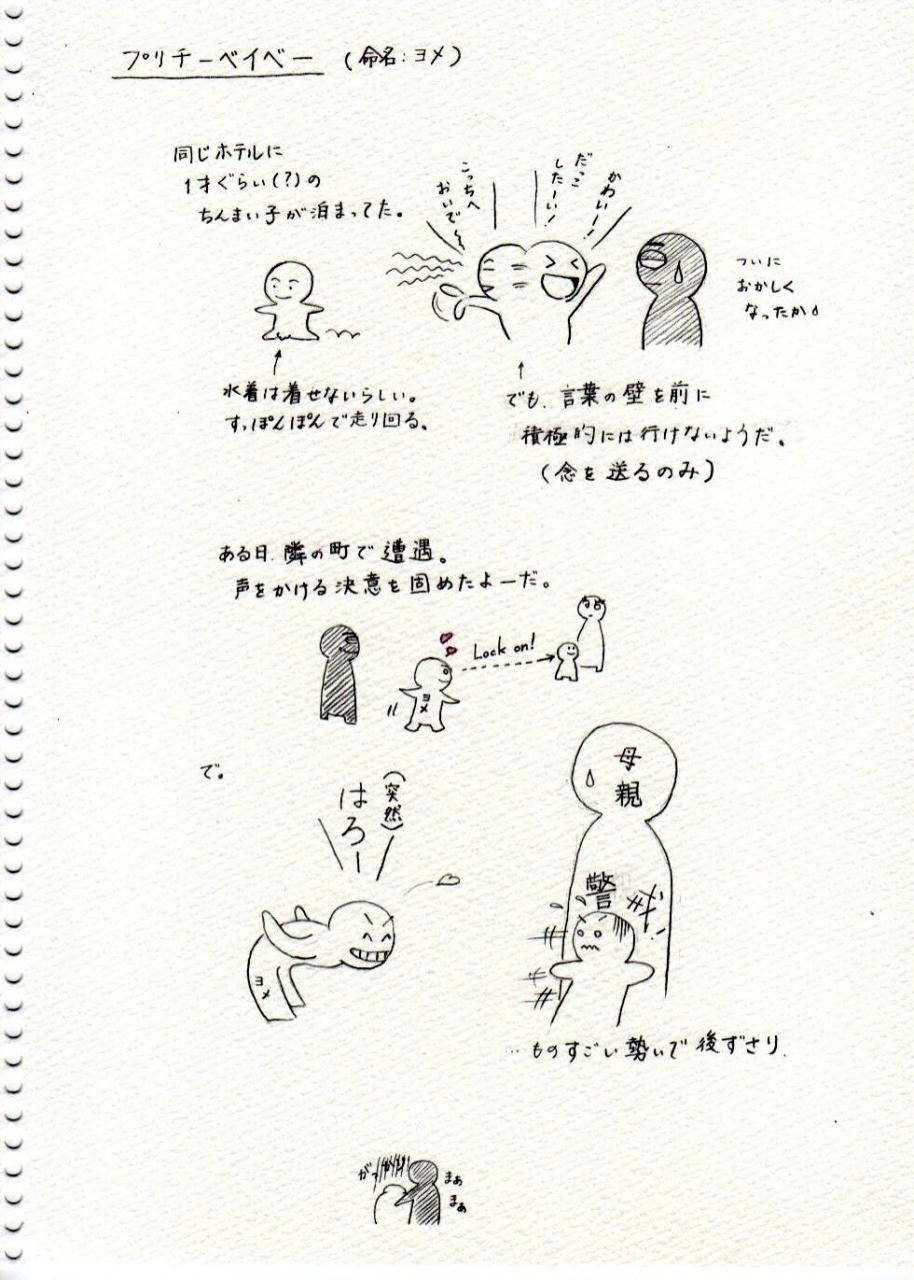 プリチーベイベー (命名:ヨメ)
同じホテルに
1才ぐらい(?)の
ちんまい子が泊まってた。
こっちへ
おいで〜
だっこ
したーい!
かわいー!
ついに
おかしく
なったか
水着は着せないらしい。
すっぽんぽんで走り回る。
でも、言葉の壁を前に
積極的には行けないようだ。
(念を送るのみ)
ある日、隣の町で遭遇。
声をかける決意を固めたよーだ。
Lock on!
ヨメ
で。
(突然)
はろー
ヨメ
母親
警戒
…ものすごい勢いで後ずさり.
がっ
まぁ
まぁ